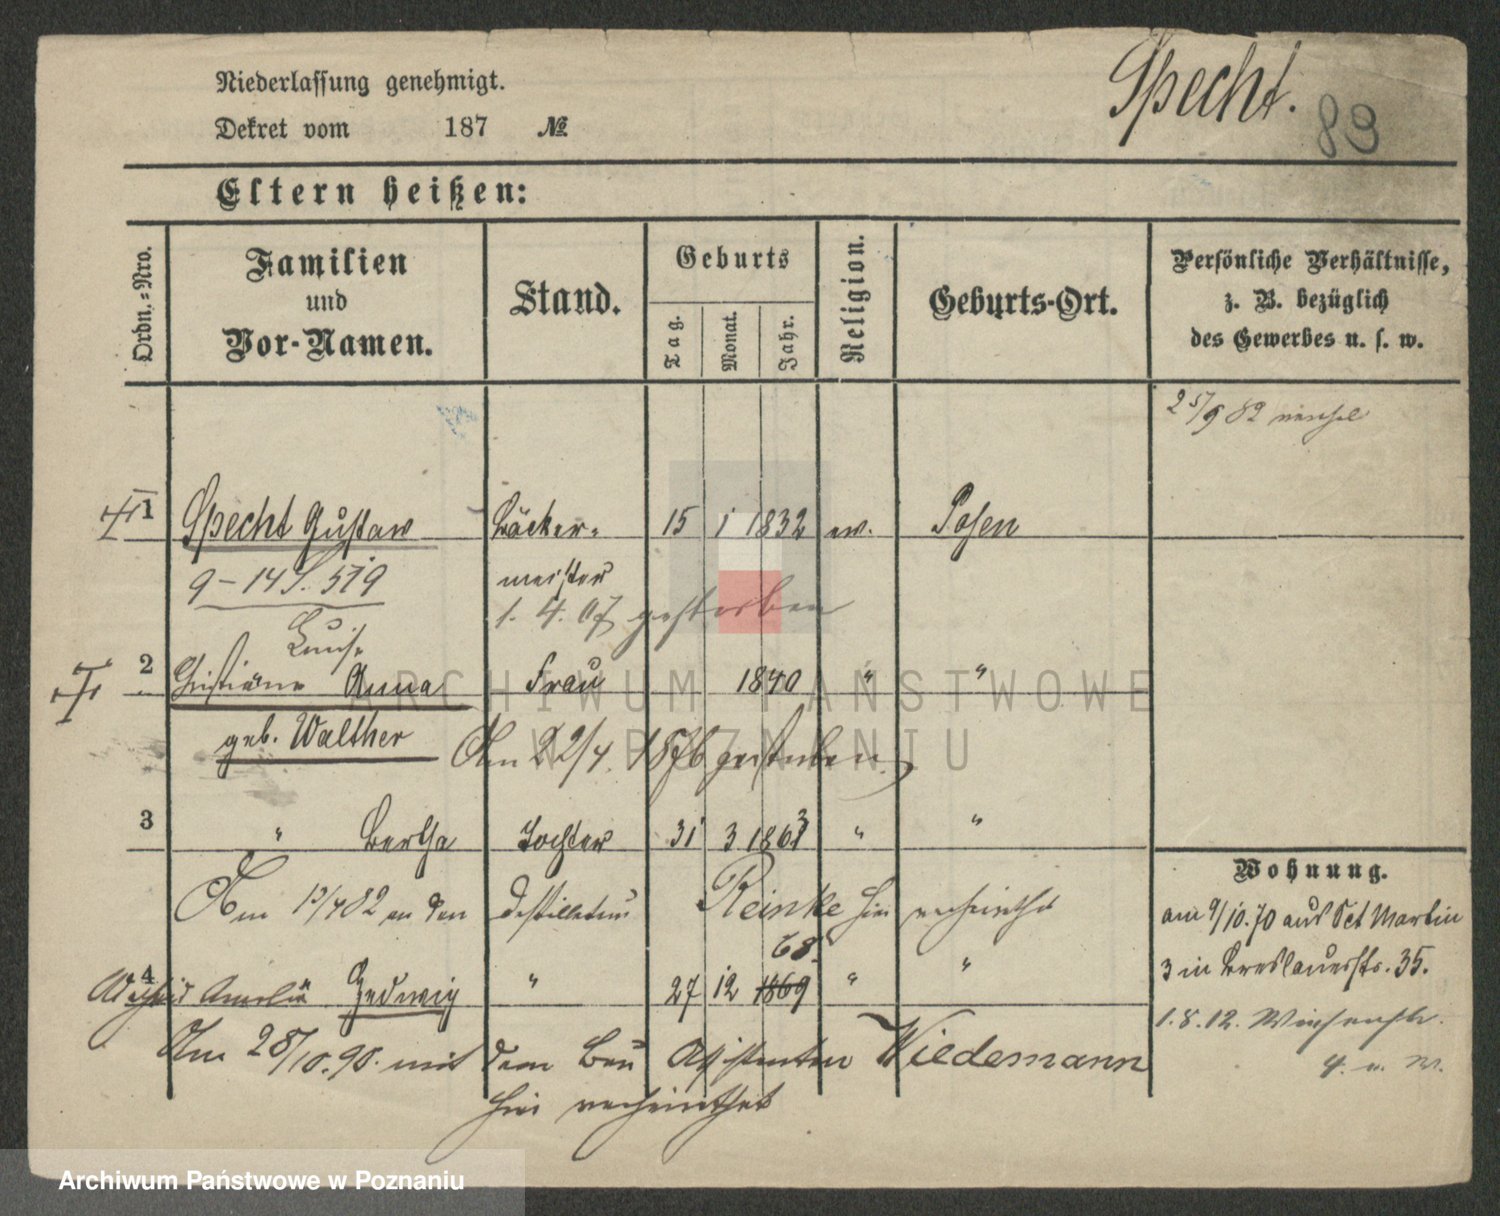 Niederlassung genehmigt.
Specht.
83
Dekret vom 187 №
Eltern heißen:
Ordn.-Nro.
Familien
und
Vor-Namen.
Stand.
Geburts
Tag.
Monat.
Jahr.
Religion.
Geburts-Ort.
Persönliche Verhältnisse,
z. B. bezüglich
des Gewerbes u. s. w.
25/9 82
1 Specht Gustav Bäcker- 15 1 1832 ev. Posen
9-14 S. 519 meister
1. 4. 07 gestorben
Luise
2 Christiane Anna Frau 1840 " "
geb. Walther Am 22/4. 1876 gestorben
3 " Bertha Tochter 31 3 1863 " "
Am 13/4 82 an den Destillateur Reinke hier verheirathet
68.
4 Amalie Hedwig " 27 12 1869 " "
Am 28/10. 90. mit dem Bau Assistenten Wiedemann
hier verheirathet
Wohnung.
am 9/10. 70 aus Sct Martin
3 in Breslauerstr. 35.
1. 8. 12.
ARCHIWUM PAŃSTWOWE
W POZNANIU
Archiwum Państwowe w Poznaniu